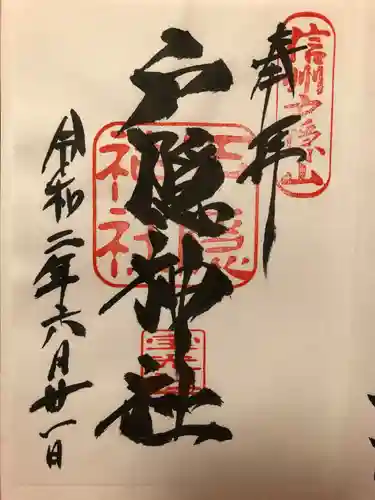 奉拝
信州戸隠山
戸隠神社
戸隠神社
宝光社
令和二年六月廿一日